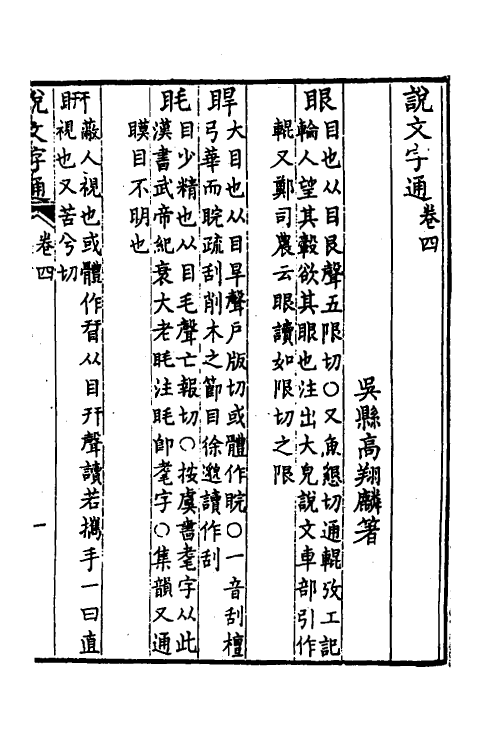 說文字通 卷四
吳縣高翔麟著
眼
目也从目艮聲五限切○又魚懇切通輥攷工記
輪人望其轂欲其眼也注出大皃說文車部引作
輥又鄭司農云眼讀如限切之限
睅
大目也从目旱聲戶版切或體作睆○一音刮檀
弓華而睆疏刮削木之節目徐邈讀作刮
眊
目少精也从目毛聲亡報切○按虞書耄字从此
漢書武帝紀哀夫老眊注眊卽耄字○集韻又通
瞙目不明也
蔽人視也或體作䀎从目幵聲讀若攜手一曰直
視也又苦兮切
說文字通
卷四
一